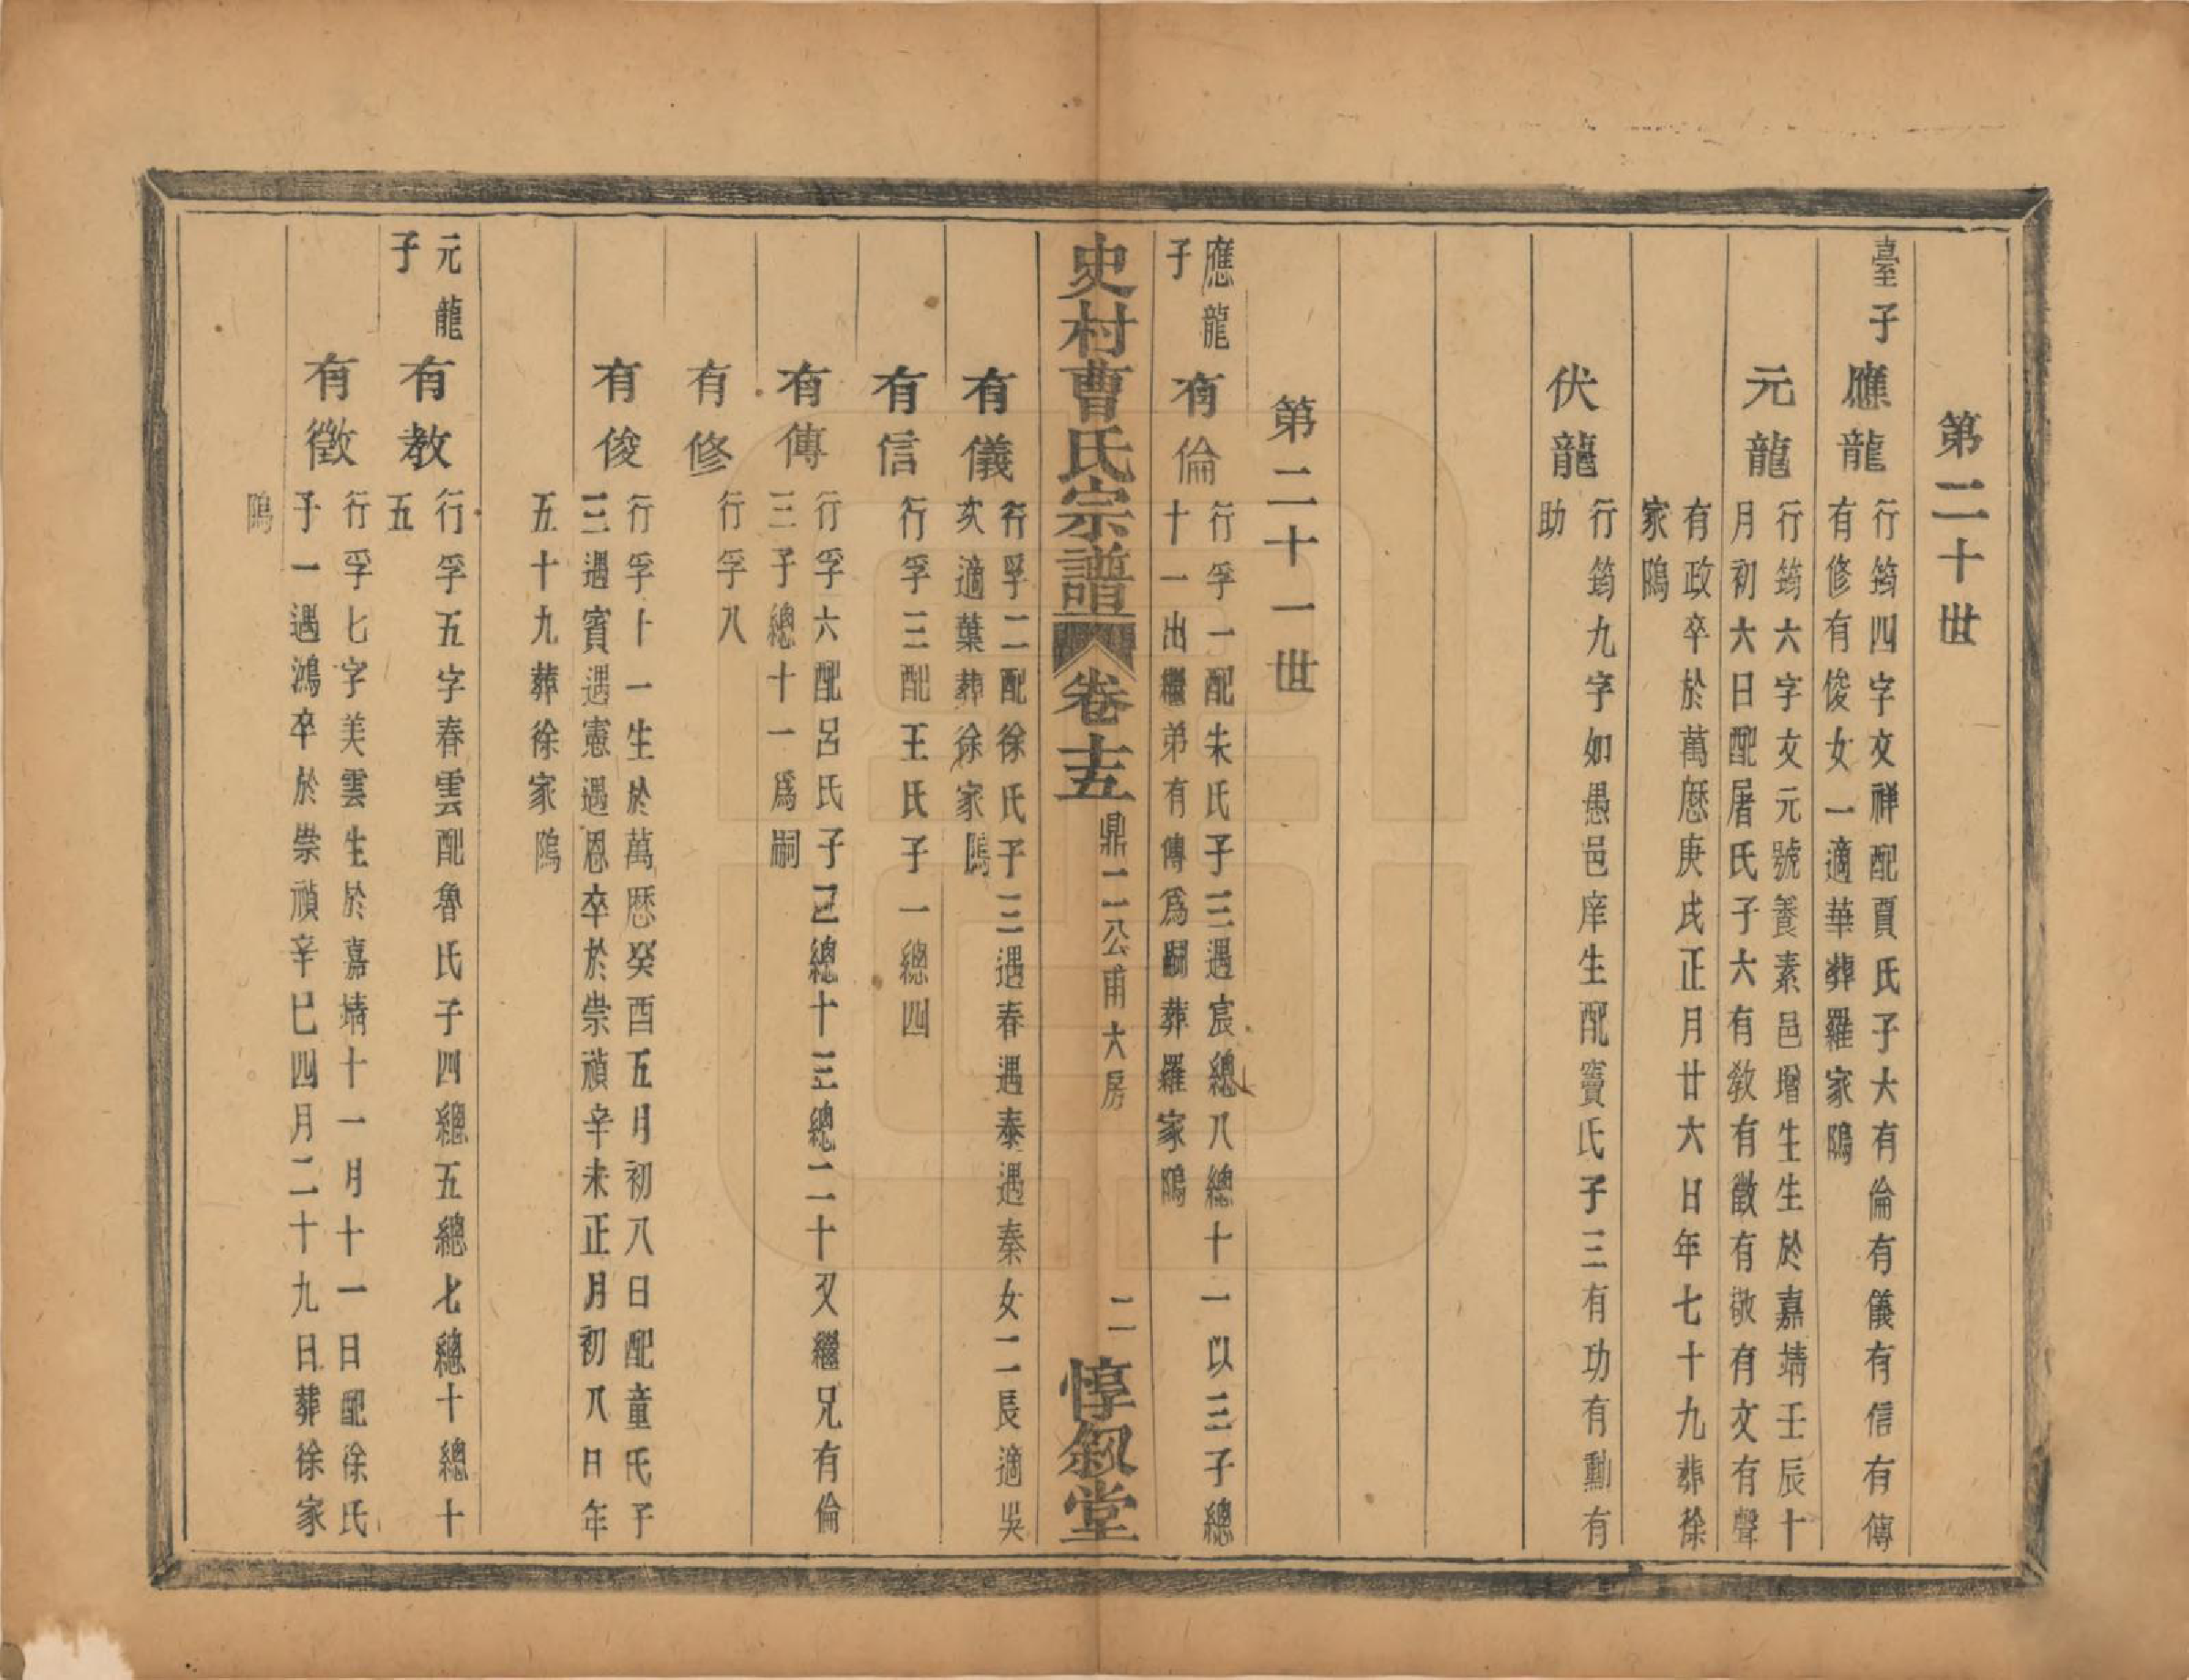 第二十世
臺子
應龍
行筠四字文祥配賈氏子六有倫有儀有信有傳
有修有俊女一適華葬羅家隖
元龍
行筠六字文元號養素邑增生生於嘉靖壬辰十
月初六日配屠氏子六有敎有徵有敬有文有聲
有政卒於萬厯庚戌正月廿六日年七十九葬徐
家隖
伏龍
行筠九字如愚邑庠生配竇氏子三有功有勳有
助
第二十一世
應龍
子
有倫
行孚一配朱氏子三遇宸總八總十一以三子總
十一出繼弟有傳爲嗣葬羅家隖
史村曹氏宗譜
卷十五
鼎二公甫大房
二
惇叙堂
有儀
行孚二配徐氏子三遇春遇泰遇秦女二長適吳
次適葉葬徐家隖
有信
行孚三配王氏子一總四
有傳
行孚六配呂氏子二總十三總二十又繼兄有倫
三子總十一爲嗣
有修
行孚八
有俊
行孚十一生於萬厯癸酉五月初八日配童氏子
三遇賓遇憲遇恩卒於崇禎辛未正月初八日年
五十九葬徐家隖
元龍
子
有敎
行孚五字春雲配魯氏子四總五總七總十總十
五
有徵
行孚七字美雲生於嘉靖十一月十一日配徐氏
子一遇鴻卒於崇禎辛巳四月二十九日葬徐家
隖